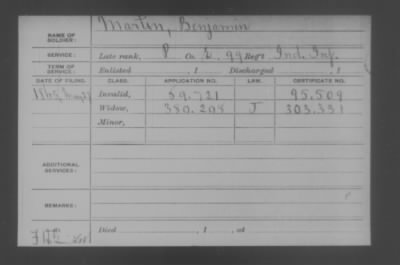 NAME OF SOLDIER: Martin, Benjamin
SERVICE: Late rank, P Co. E, 99 Reg't Ind. Inf.
TERM OF SERVICE: Enlisted , 1 Discharged , 1
DATE OF FILING. CLASS. APPLICATION NO. LAW. CERTIFICATE NO.
1865, Invalid, 69.721 95.509
Widow, 380.208 J 303.331
Minor,
ADDITIONAL SERVICES:
REMARKS:
Died , 1 , at